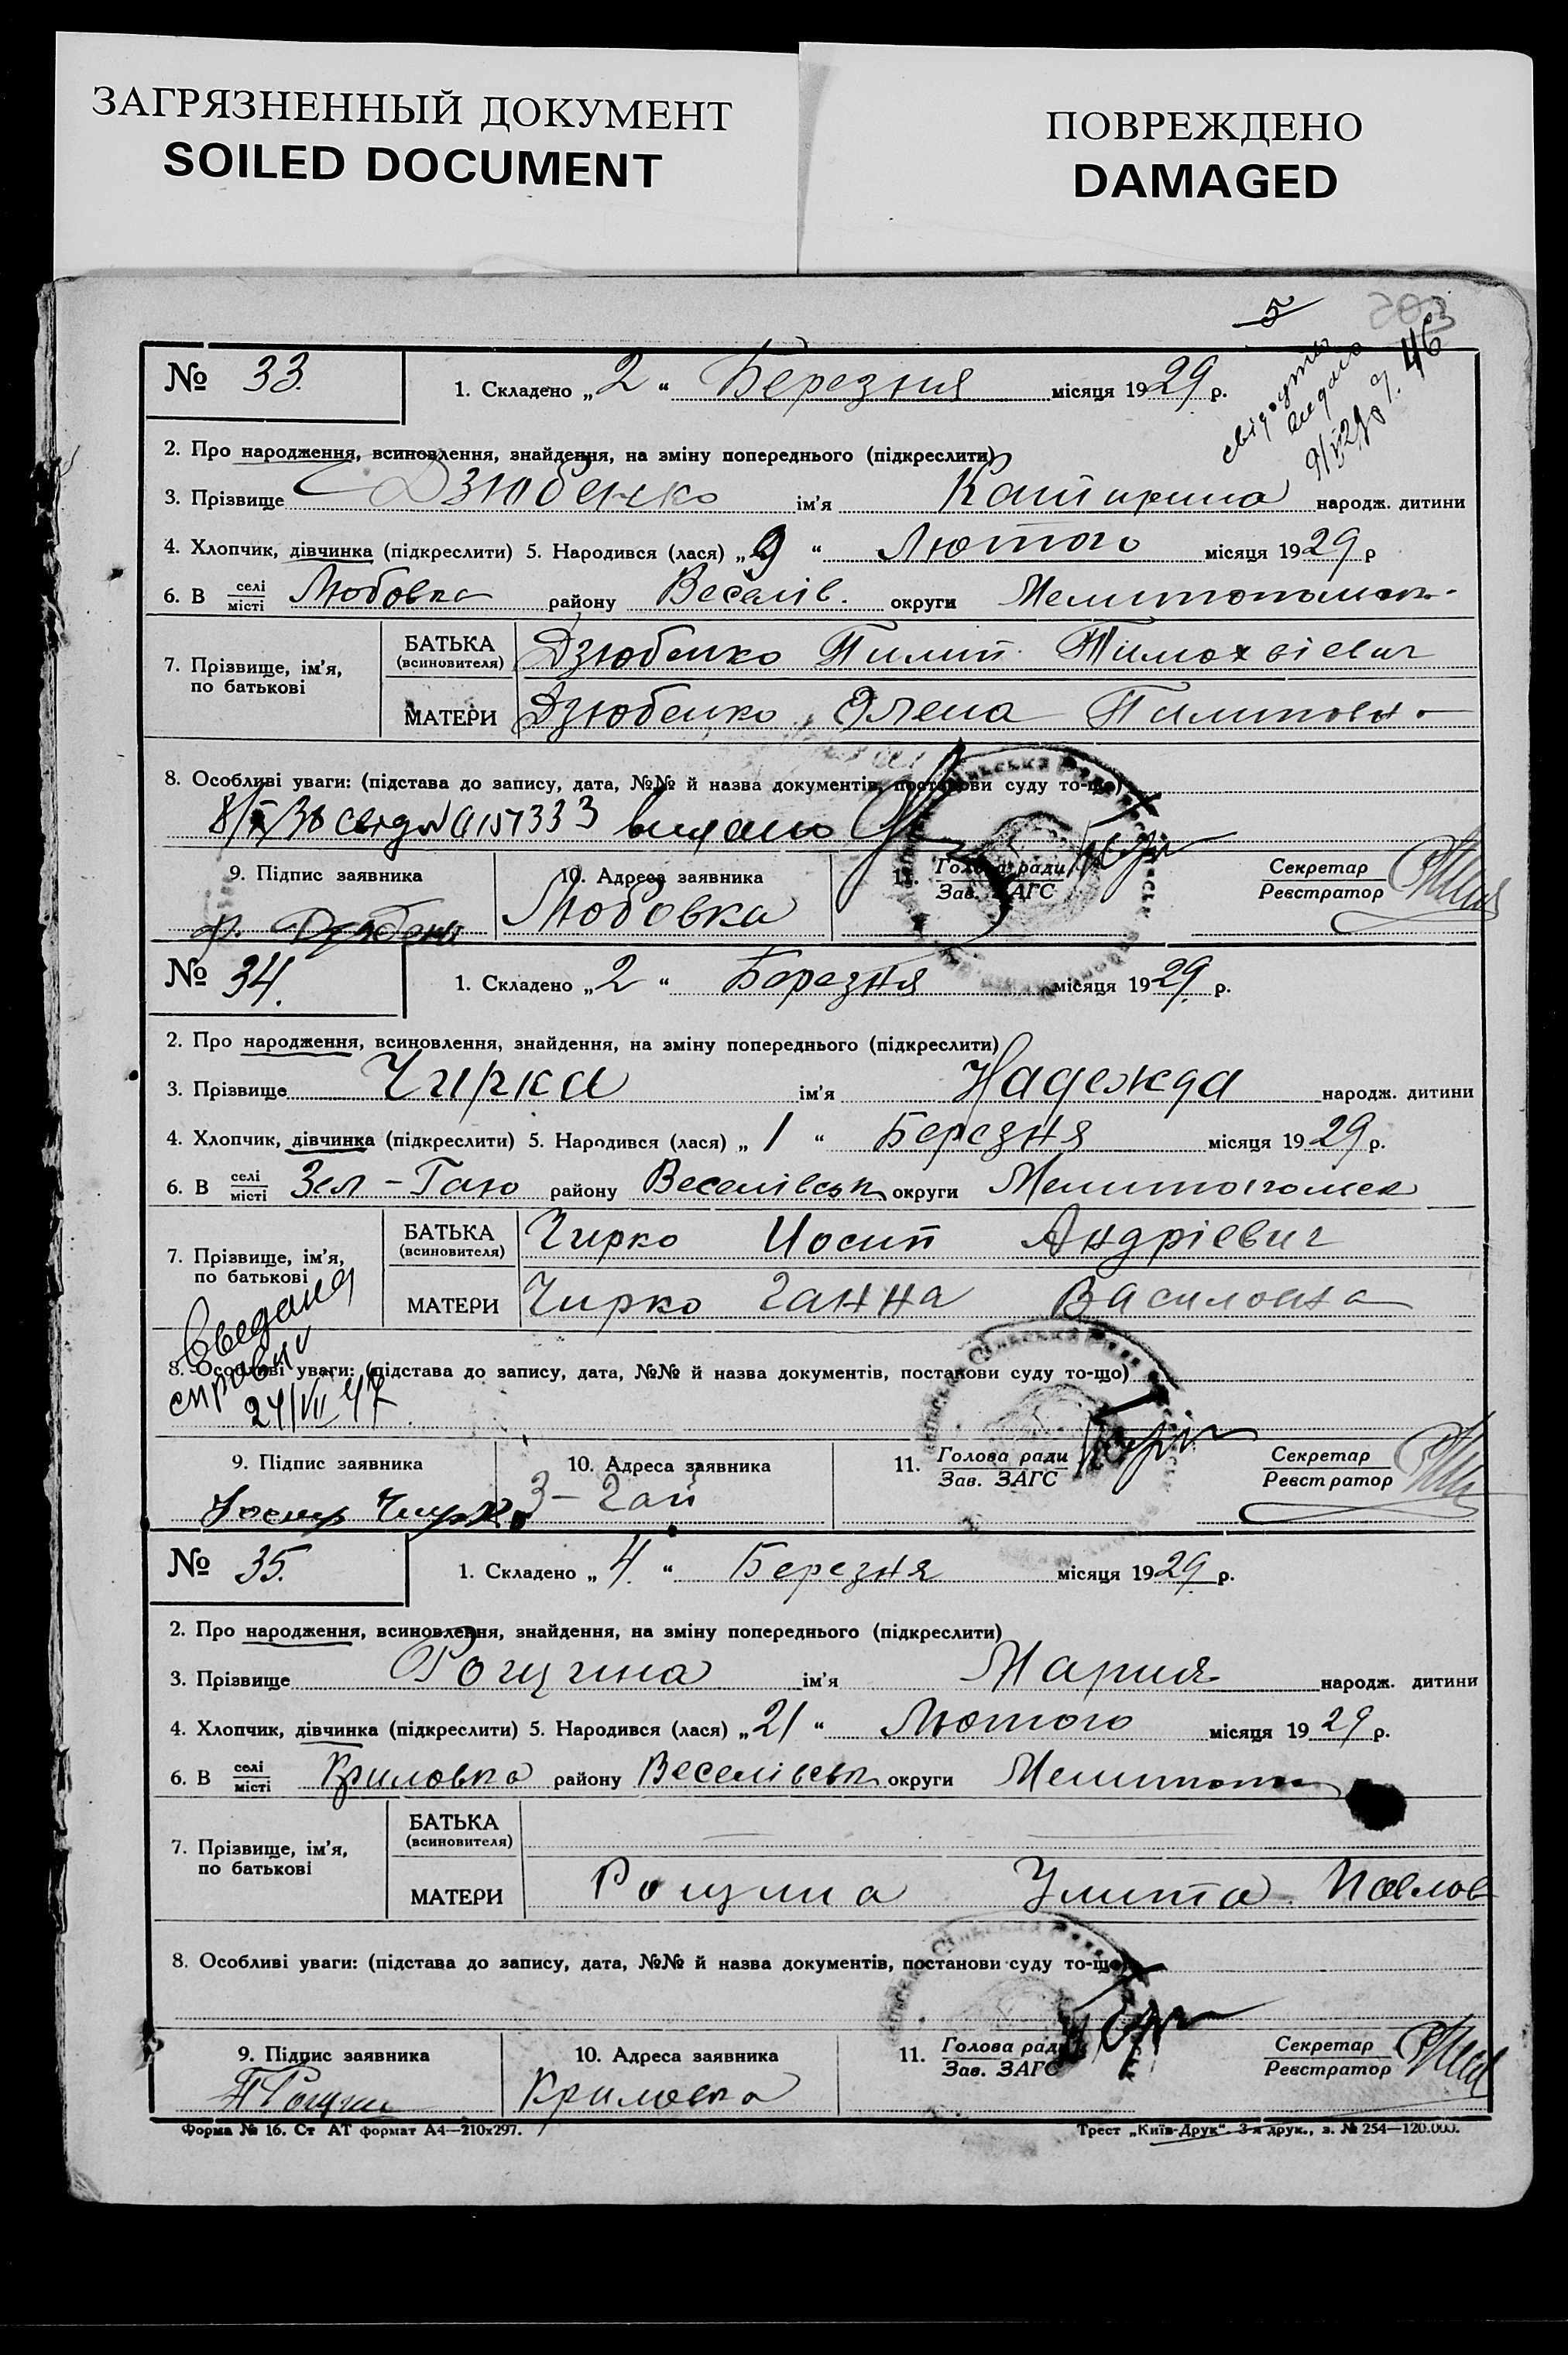 ЗАГРЯЗНЕННЫЙ ДОКУМЕНТ
SOILED DOCUMENT
ПОВРЕЖДЕНО
DAMAGED
5
203
46
№ 33.
1. Складено „2“ Березня місяця 1929 р.
2. Про народження, всиновлення, знайдення, на зміну попереднього (підкреслити)
3. Прізвище Дзюбенко ім'я Катирина народж. дитини
4. Хлопчик, дівчинка (підкреслити) 5. Народився (лася) „9“ Лютого місяця 1929 р
6. В селі місті Любовка району Веселів. округи
7. Прізвище, ім'я, по батькові
БАТЬКА (всиновителя) Дзюбенко Пилип
МАТЕРИ Дзюбенко Олена Пилиповна
8. Особливі уваги: (підстава до запису, дата, №№ й назва документів, постанови суду то-що)
видано
9. Підпис заявника
10. Адреса заявника
Любовка
11. Голова ради Зав. ЗАГС
Секретар Реєстратор
№ 34.
1. Складено „2“ Березня місяця 1929 р.
2. Про народження, всиновлення, знайдення, на зміну попереднього (підкреслити)
3. Прізвище Чирка ім'я Надежда народж. дитини
4. Хлопчик, дівчинка (підкреслити) 5. Народився (лася) „1“ Березня місяця 1929 р.
6. В селі місті Зел-Гаю району Веселівськ округи
7. Прізвище, ім'я, по батькові
БАТЬКА (всиновителя) Чирко Иосип Андрієвич
МАТЕРИ Чирко Ганна
8. Особливі уваги: (підстава до запису, дата, №№ й назва документів, постанови суду то-що)
24/VII 47
9. Підпис заявника
10. Адреса заявника
З-Гай
11. Голова ради Зав. ЗАГС
Секретар Реєстратор
№ 35.
1. Складено „4.“ Березня місяця 1929 р.
2. Про народження, всиновлення, знайдення, на зміну попереднього (підкреслити)
3. Прізвище Рощина ім'я Мария народж. дитини
4. Хлопчик, дівчинка (підкреслити) 5. Народився (лася) „21“ Лютого місяця 1929 р.
6. В селі місті Криловка району Веселівськ округи
7. Прізвище, ім'я, по батькові
БАТЬКА (всиновителя)
МАТЕРИ Рощина Улита Павлов
8. Особливі уваги: (підстава до запису, дата, №№ й назва документів, постанови суду то-що)
9. Підпис заявника
10. Адреса заявника
Криловка
11. Голова ради Зав. ЗАГС
Секретар Реєстратор
Форма № 16. Ст АТ формат А4—210x297.
Трест „Київ-Друк“. 3-я друк., з. № 254—120.000.